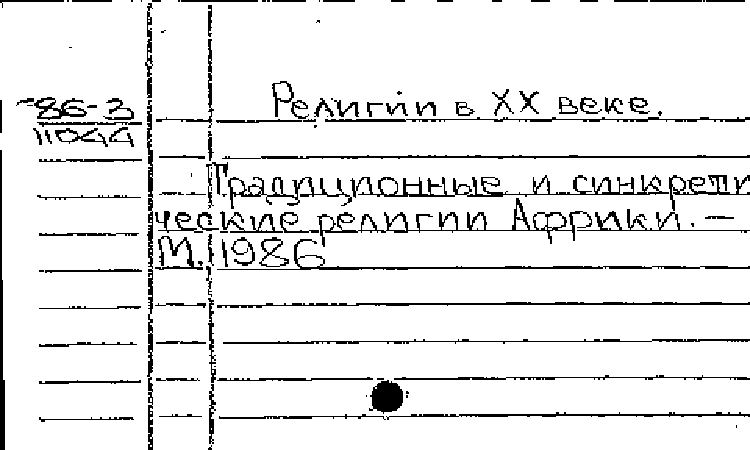 86-3
11044
Религии в XX веке.
Традиционные и синкрети
ческие религии Африки. —
М. 1986